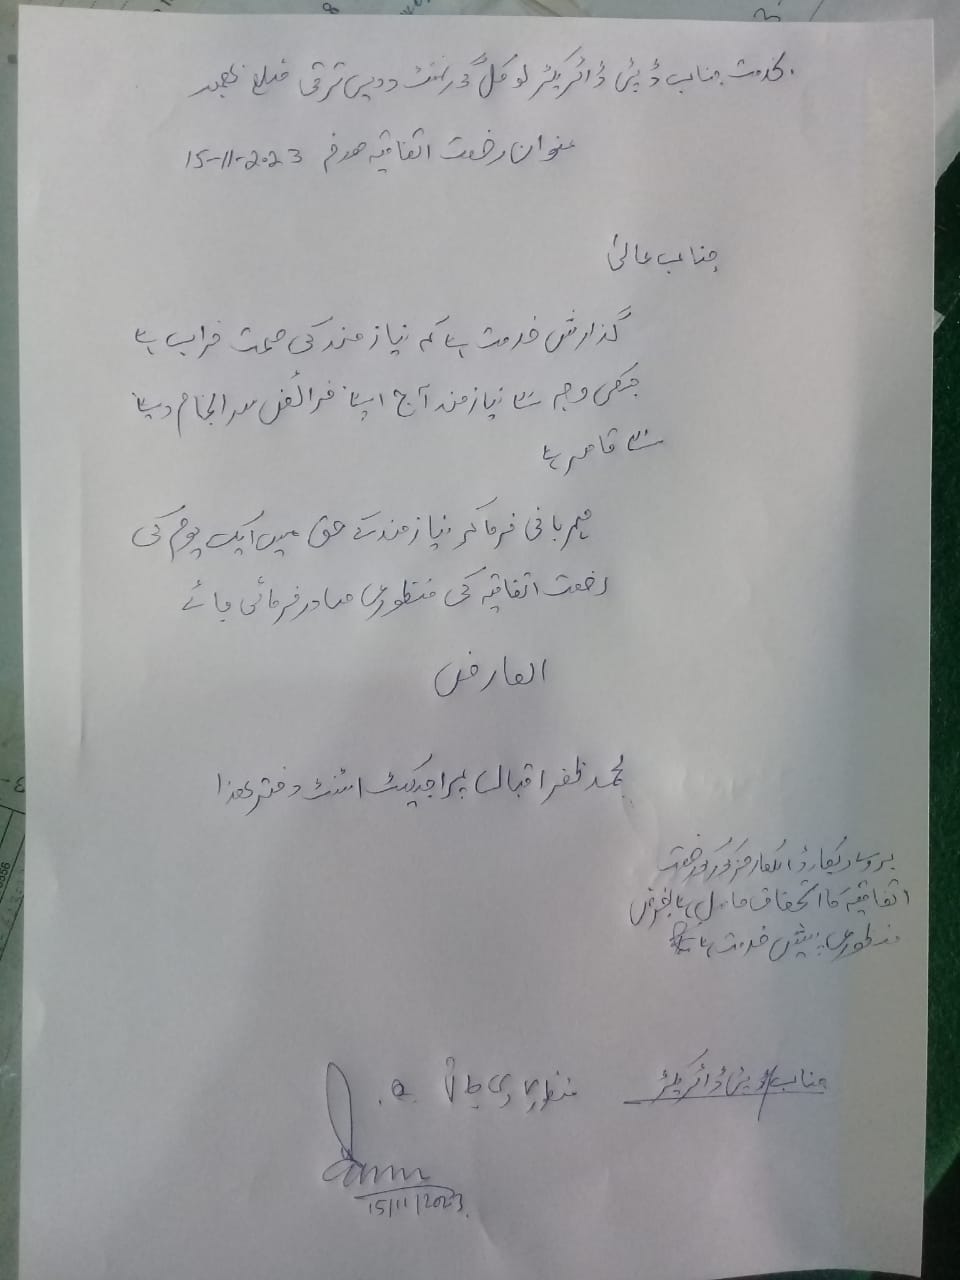 بخدمت جناب ڈپٹی ڈائریکٹر لوکل گورنمنٹ و دیہی ترقی ضلع
عنوان رخصت اتفاقیہ 15-11-2023
جناب عالیٰ
گذارش خدمت ہے کہ نیاز مند کی صحت خراب ہے
جسکی وجہ سے نیاز مند آج اپنے فرائض سر انجام دینے
سے قاصر ہے
مہربانی فرما کر نیاز مند کے حق میں ایک یوم کی
رخصت اتفاقیہ کی منظوری صادر فرمائی جائے
العارض
محمد ظفر اقبال پراجیکٹ اسسٹنٹ دفتر ھذا
بروئے ریکارڈ اہلکار مذکور رخصت
اتفاقیہ کا استحقاق حامل ہے بغرض
منظوری پیش خدمت ہے
جناب ڈپٹی ڈائریکٹر
منظوری دی جاتی ہے.
15/11/2023